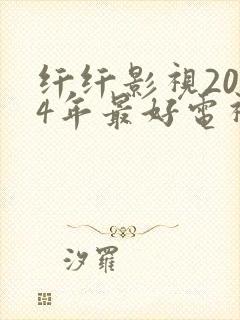 纤纤影視20
4年最好電視
汐羅